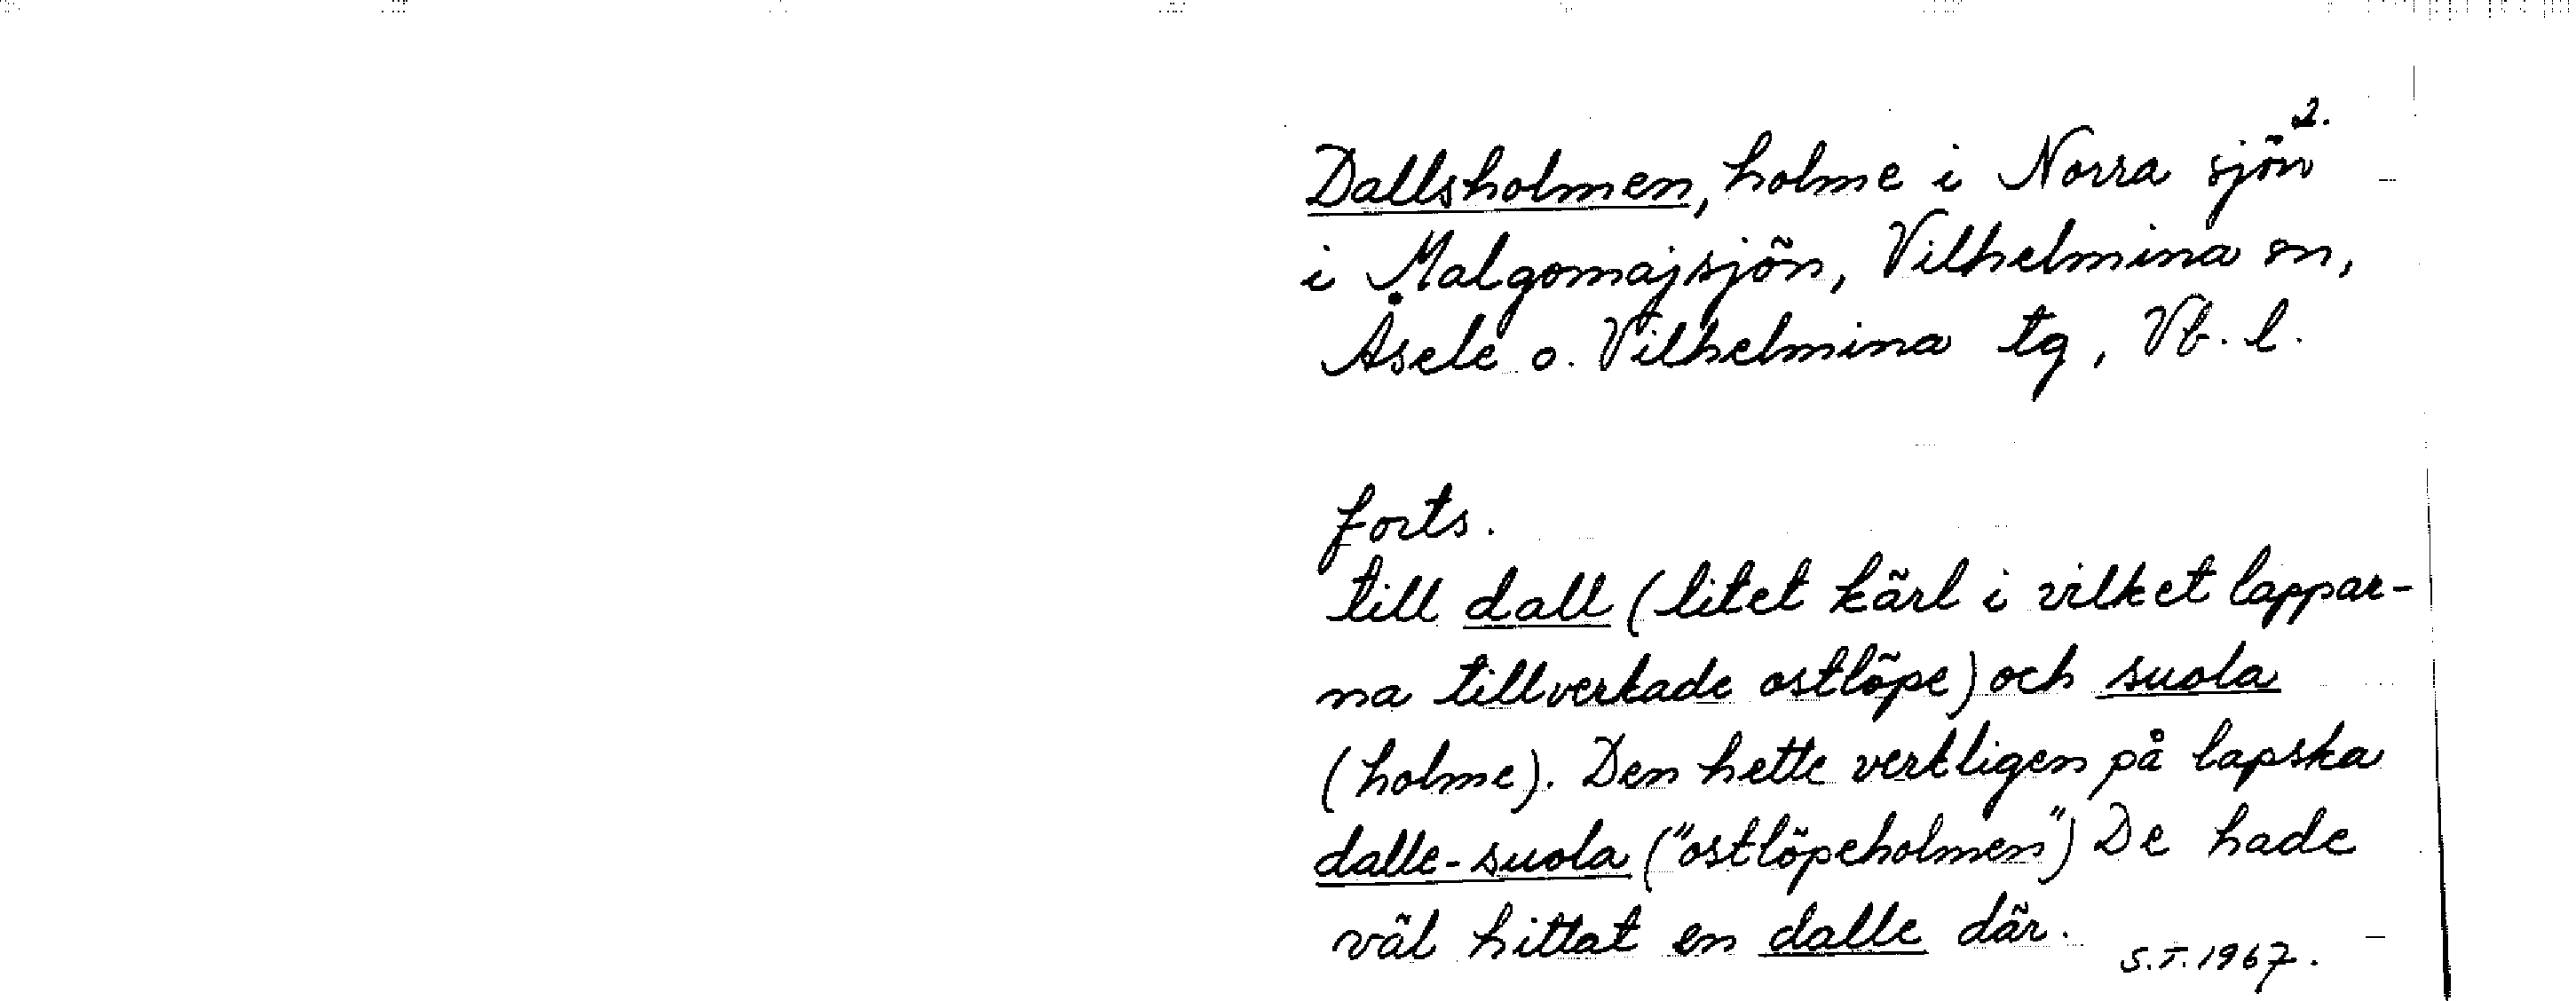 2.
Dallsholmen, holme i Norra sjön
i Malgomajsjön, Vilhelmina sn,
Åsele o. Vilhelmina tg, Vb. l.
forts.
till dall (litet kärl i vilket lappar-
na tillverkade ostlöpe) och suola
(holme). Den hette verkligen på lapska
dalle-suola ("ostlöpeholmen") De hade
väl hittat en dalle där.
S.T. 1967.